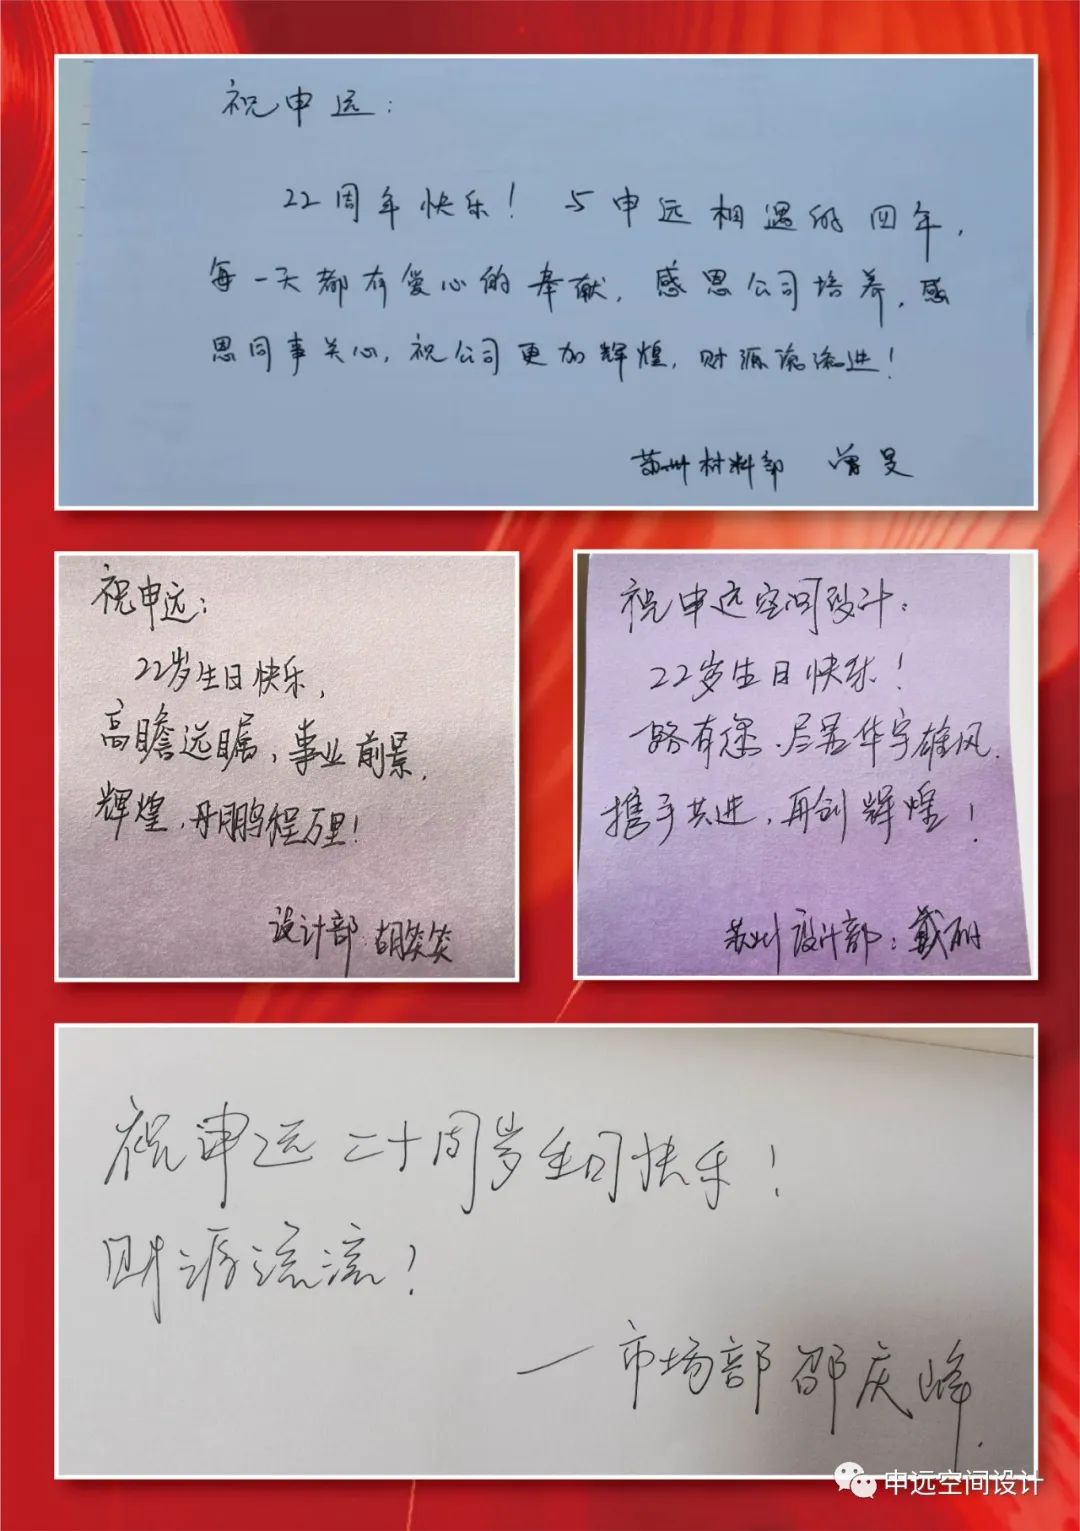 祝申远：
22周年快乐！与申远相遇的四年，
每一天都有爱心的奉献，感恩公司培养，感
恩同事关心，祝公司更加辉煌，财源滚滚进！
苏州材料部 曾旻
祝申远：
22岁生日快乐，
高瞻远瞩，事业前景
辉煌，鹏程万里！
设计部 胡笑笑
祝申远空间设计：
22岁生日快乐！
一路有您，尽显华宇雄风
携手共进，再创辉煌！
苏州设计部：戴
祝申远二十周岁生日快乐！
财源流流！
一市场部 邵庆峰
申远空间设计